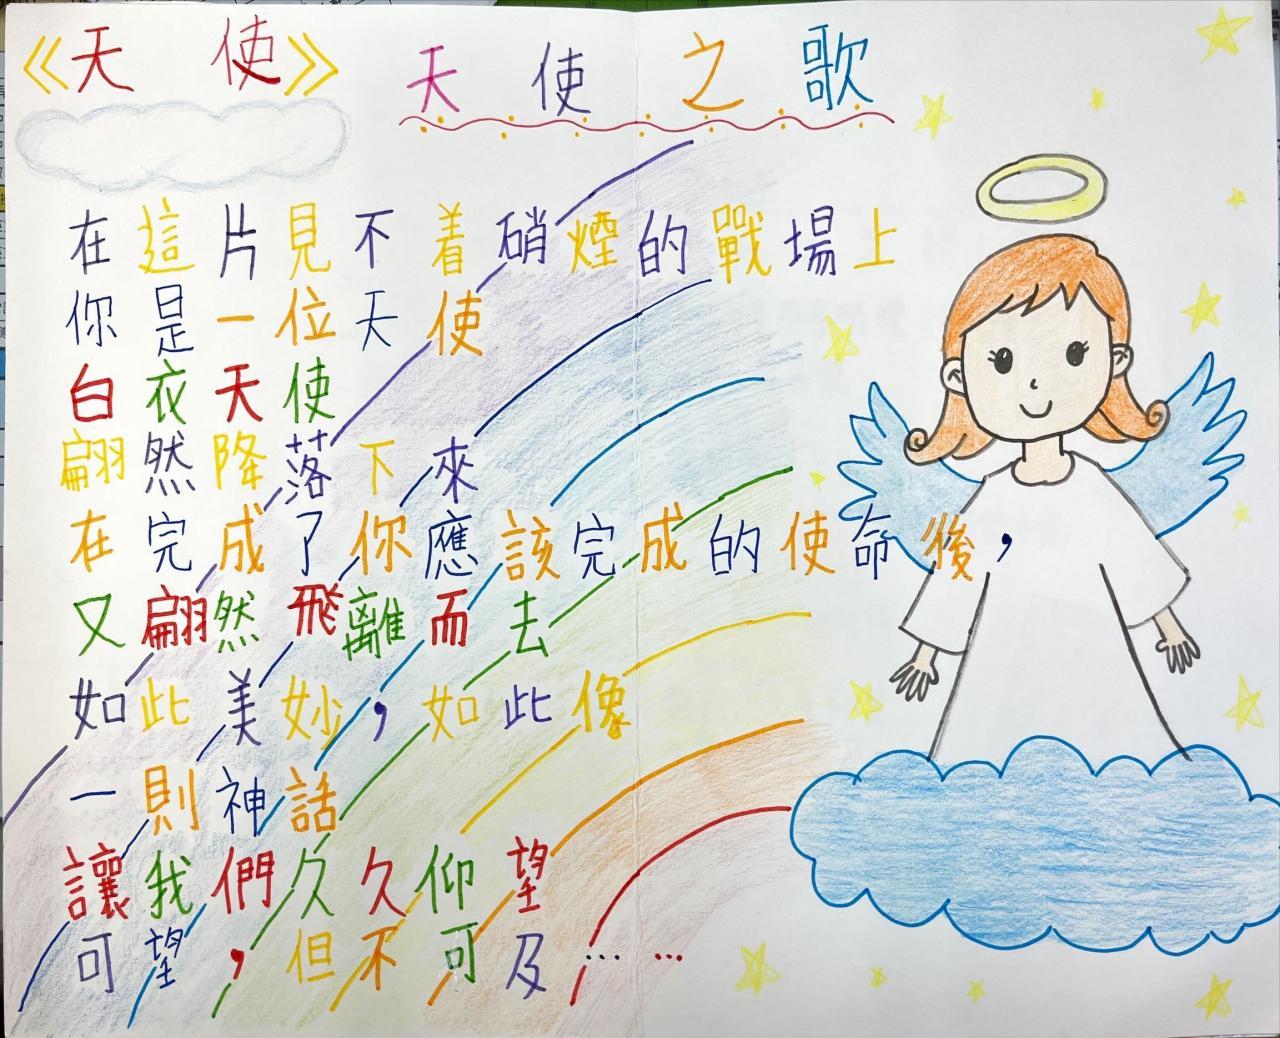 《天使》
天使之歌
在這片見不着硝煙的戰場上
你是一位天使
白衣天使
翩然降落下來
在完成了你應該完成的使命後，
又翩然飛離而去
如此美妙，如此像
一則神話
讓我們久久仰望
可望，但不可及……